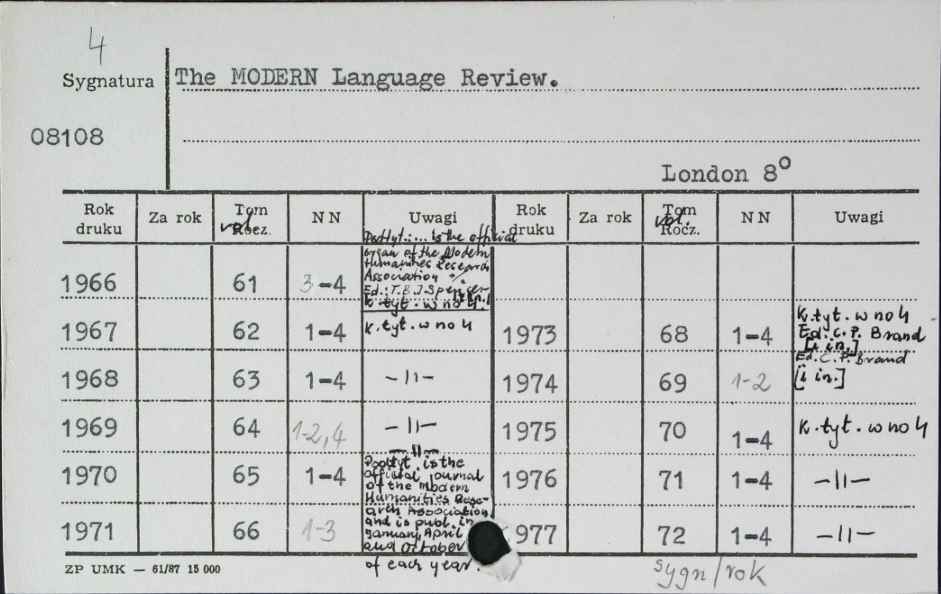 4
Sygnatura The MODERN Language Review.
08108
London 8º
Rok druku Za rok Tom vol. Rocz. NN Uwagi Rok druku Za rok Tom vol. Rocz. NN Uwagi
1966 61 3-4
Podtyt.: ... is the official
organ of the Modern
Humanities Research
Association
Ed.: T.B.J. Spencer
[i in.]
K. tyt. w no 4.
1967 62 1-4 K. tyt. w no 4 1973 68 1-4 K. tyt. w no 4
Ed.: C. P. Brand
[i in.]
1968 63 1-4 -11- 1974 69 1-2 Ed. C. P. Brand
[i in.]
1969 64 1-2,4 -11- 1975 70 1-4 K. tyt. w no 4
1970 65 1-4 -11- 1976 71 1-4 -11-
Podtyt. is the
official journal
of the Modern
Humanities Rese-
arch Association
and is publ. in
January, April
and October
of each year.
1971 66 1-3 977 72 1-4 -11-
ZP UMK — 61/87 15 000
sygn/rok